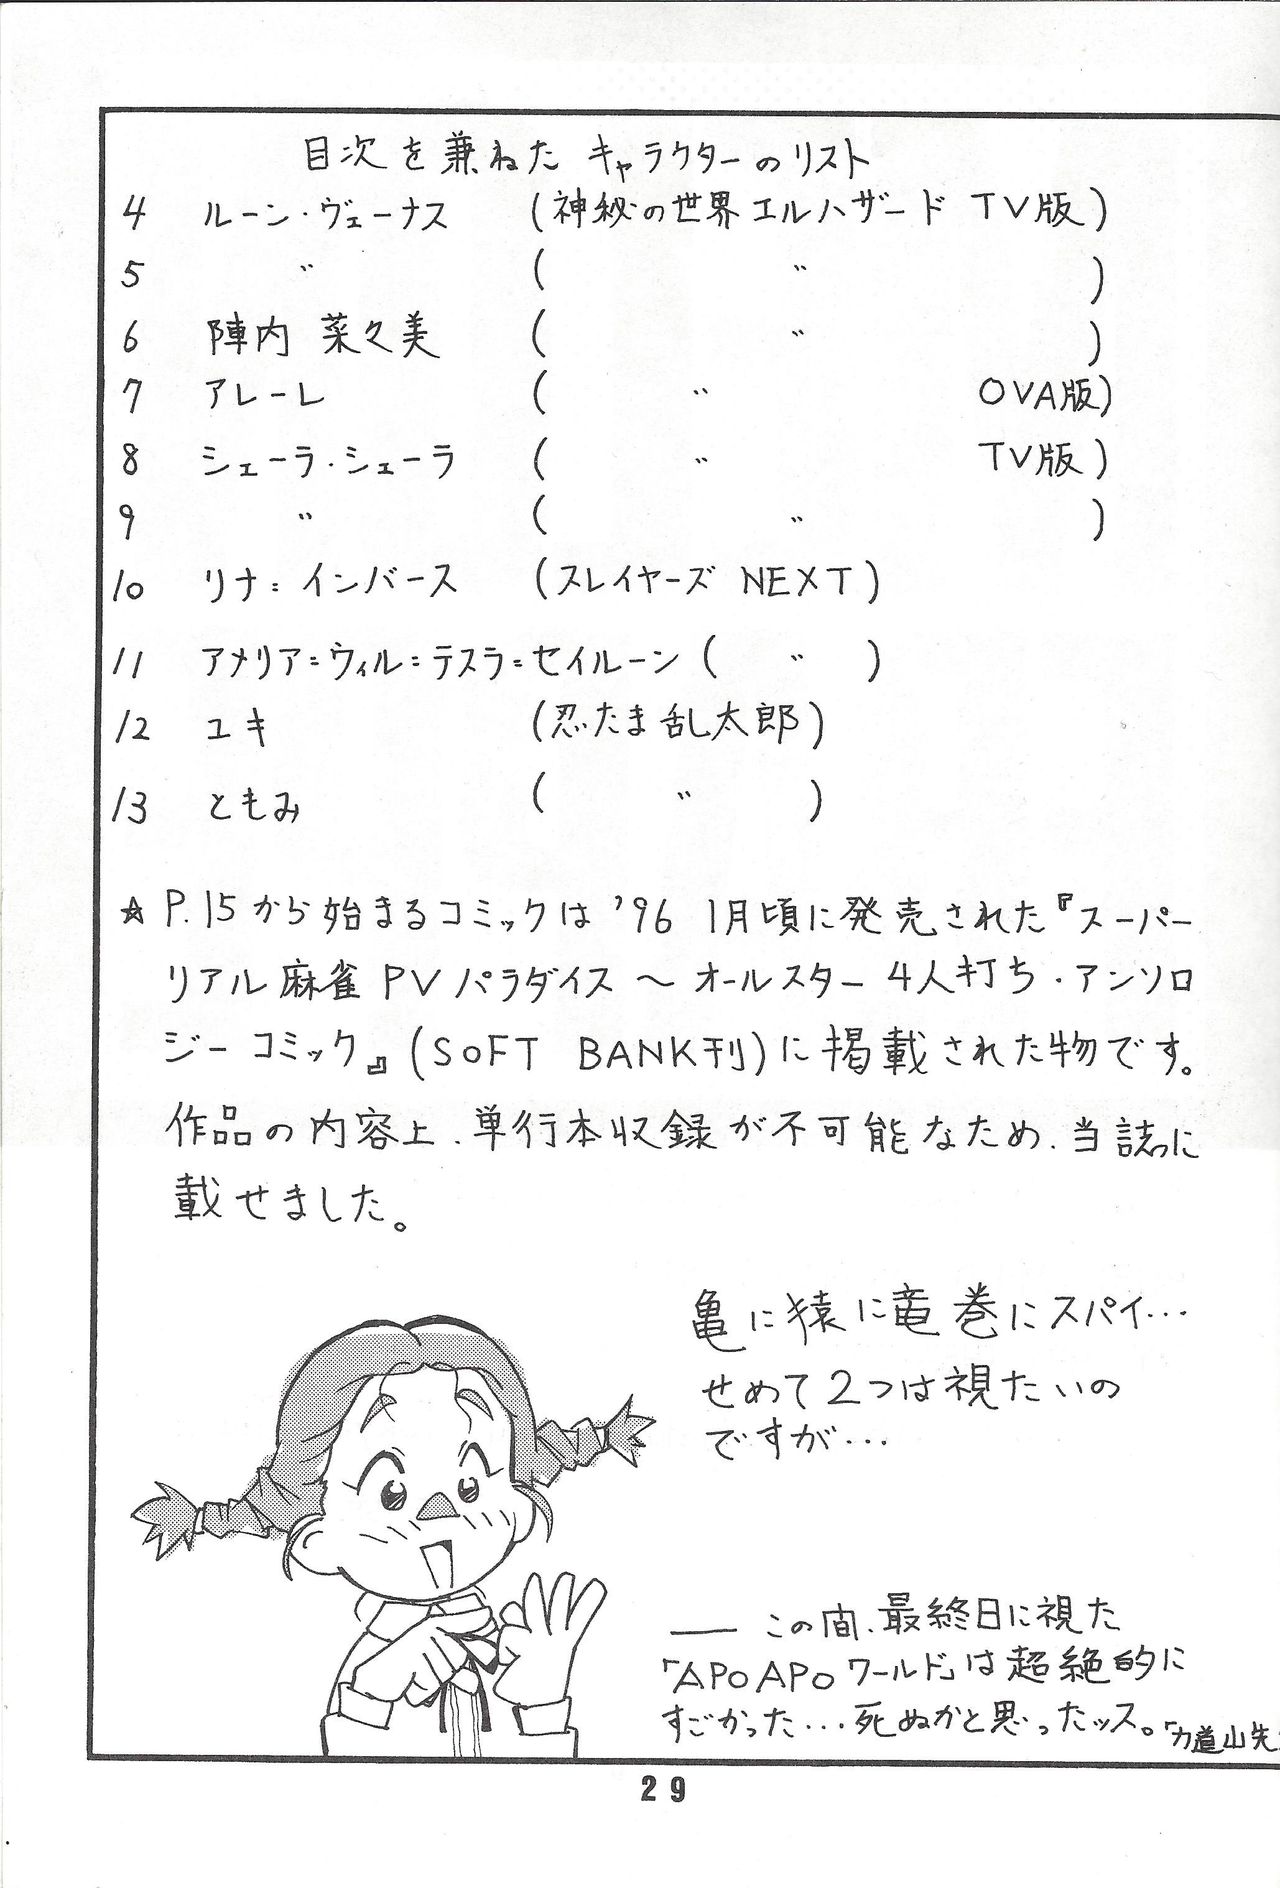 目次を兼ねた キャラクターのリスト
4 ルーン・ヴェーナス (神秘の世界エルハザード TV版)
5 〃 ( 〃 )
6 陣内 菜々美 ( 〃 )
7 アレーレ ( 〃 OVA版)
8 シェーラ・シェーラ ( 〃 TV版)
9 〃 ( 〃 )
10 リナ=インバース (スレイヤーズ NEXT)
11 アメリア=ウィル=テスラ=セイルーン ( 〃 )
12 ユキ (忍たま乱太郎)
13 ともみ ( 〃 )
☆ P.15から始まるコミックは '96 1月頃に発売された『スーパー
リアル麻雀 PV パラダイス 〜 オールスター 4人打ち・アンソロ
ジー コミック』(SOFT BANK刊)に掲載された物です。
作品の内容上、単行本収録が不可能なため、当誌に
載せました。
亀に猿に竜巻にスパイ…
せめて2つは視たいの
ですが…
── この間、最終日に視た
「APOAPO ワールド」は超絶的に
すごかった…死ぬかと思ったッス。「力道山先
29